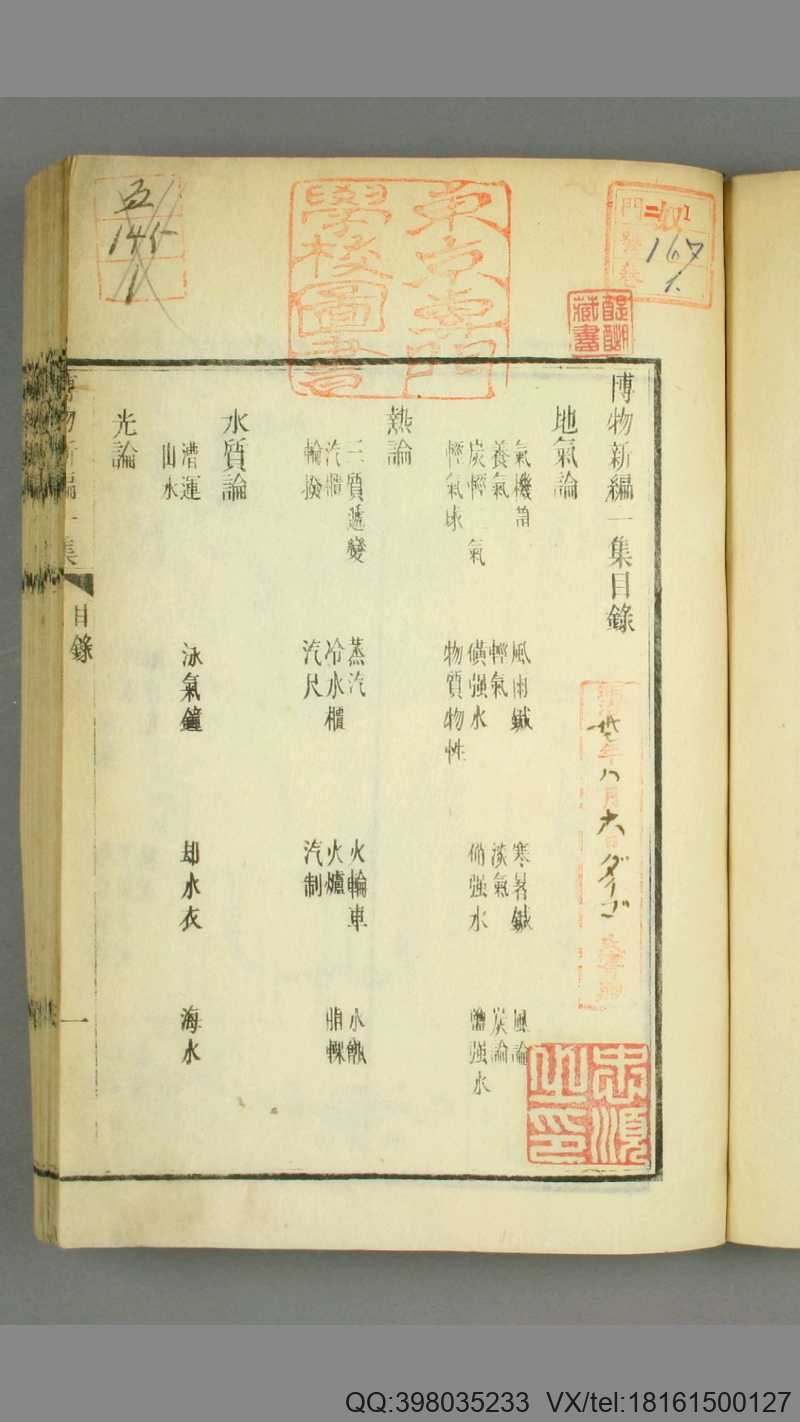 博物新編一集目錄
地氣論
氣機筩 風雨鍼 寒暑鍼 風論
養氣 輕氣 淡氣 炭論
炭輕二氣 磺强水 硝强水 鹽强水
輕氣球 物質物性
熱論
三質遞變 蒸汽 火輪車 水甑
汽櫃 冷水櫃 火爐
輪撥 汽尺 汽制
水質論
漕運 泳氣鐘 却水衣 海水
山水
光論
博物新編一集
目錄
一
東京專門
學校圖書
醍醐
藏書
167
1.
五
145
1
年八月六日
之印
QQ:398035233 VX/tel:18161500127